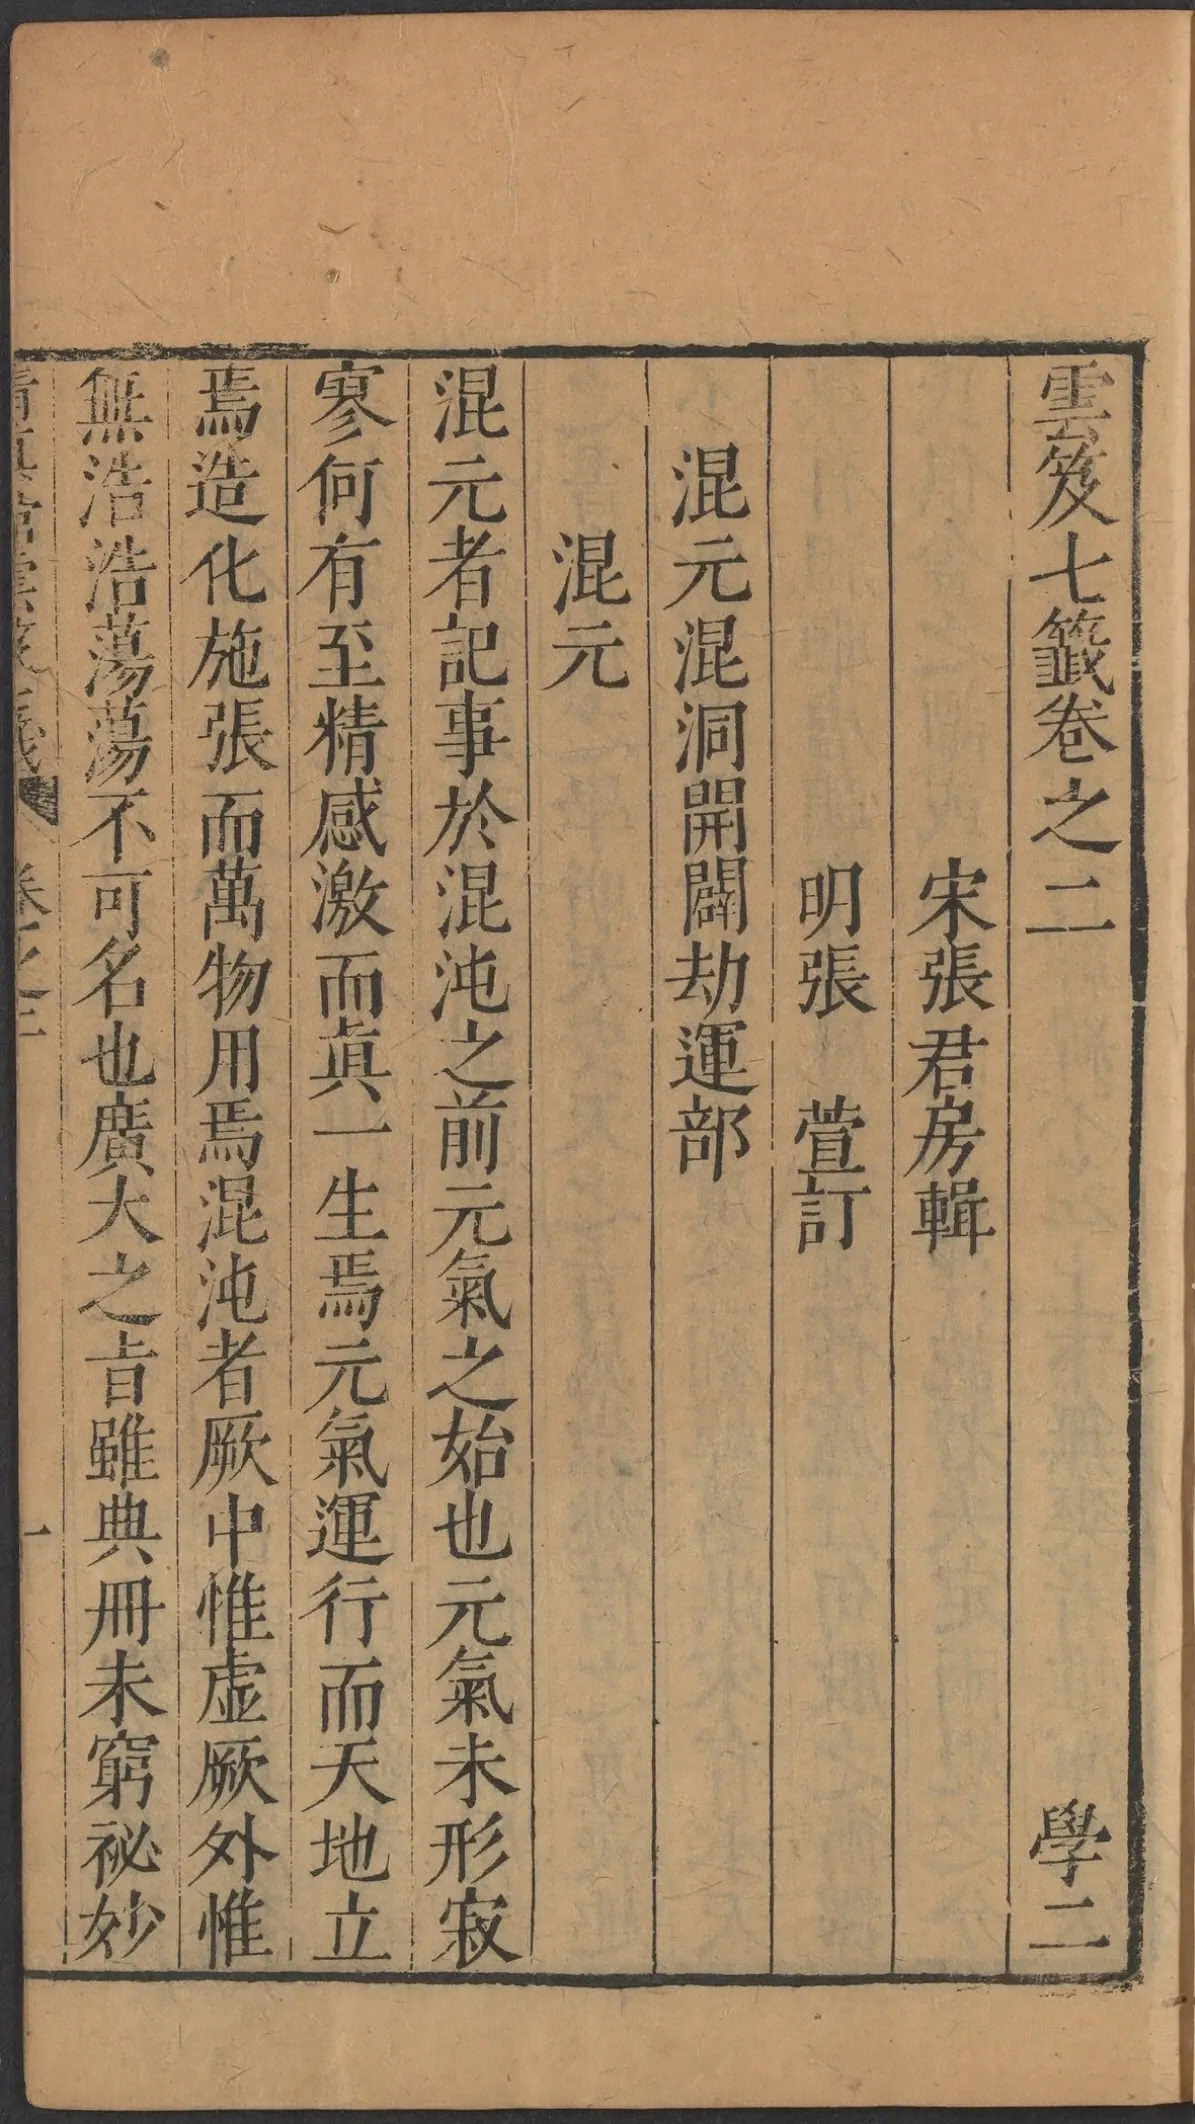 雲笈七籤卷之二 學二
宋張君房輯
明張 萱訂
混元混洞開闢劫運部
混元
混元者記事於混沌之前元氣之始也元氣未形寂
寥何有至精感激而眞一生焉元氣運行而天地立
焉造化施張而萬物用焉混沌者厥中惟虛厥外惟
無浩浩蕩蕩不可名也廣大之旨雖典冊未窮祕妙
卷之二 一